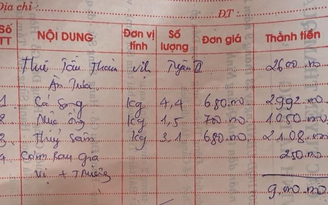 Địa chỉ: ĐT:
Số TT NỘI DUNG Đơn vị tính Số lượng Đơn giá Thành tiền
Thuê Tàu Tham Vịnh Tuyến II 2600.000
Ăn trưa
1 Cá Song kg 4,4 680.000 2992.000
2 Mực ống kg 1,5 700.000 1050.000
3 kg 3.1 680.000 2108.000
4 Cơm Rau 250.000
9.000.000